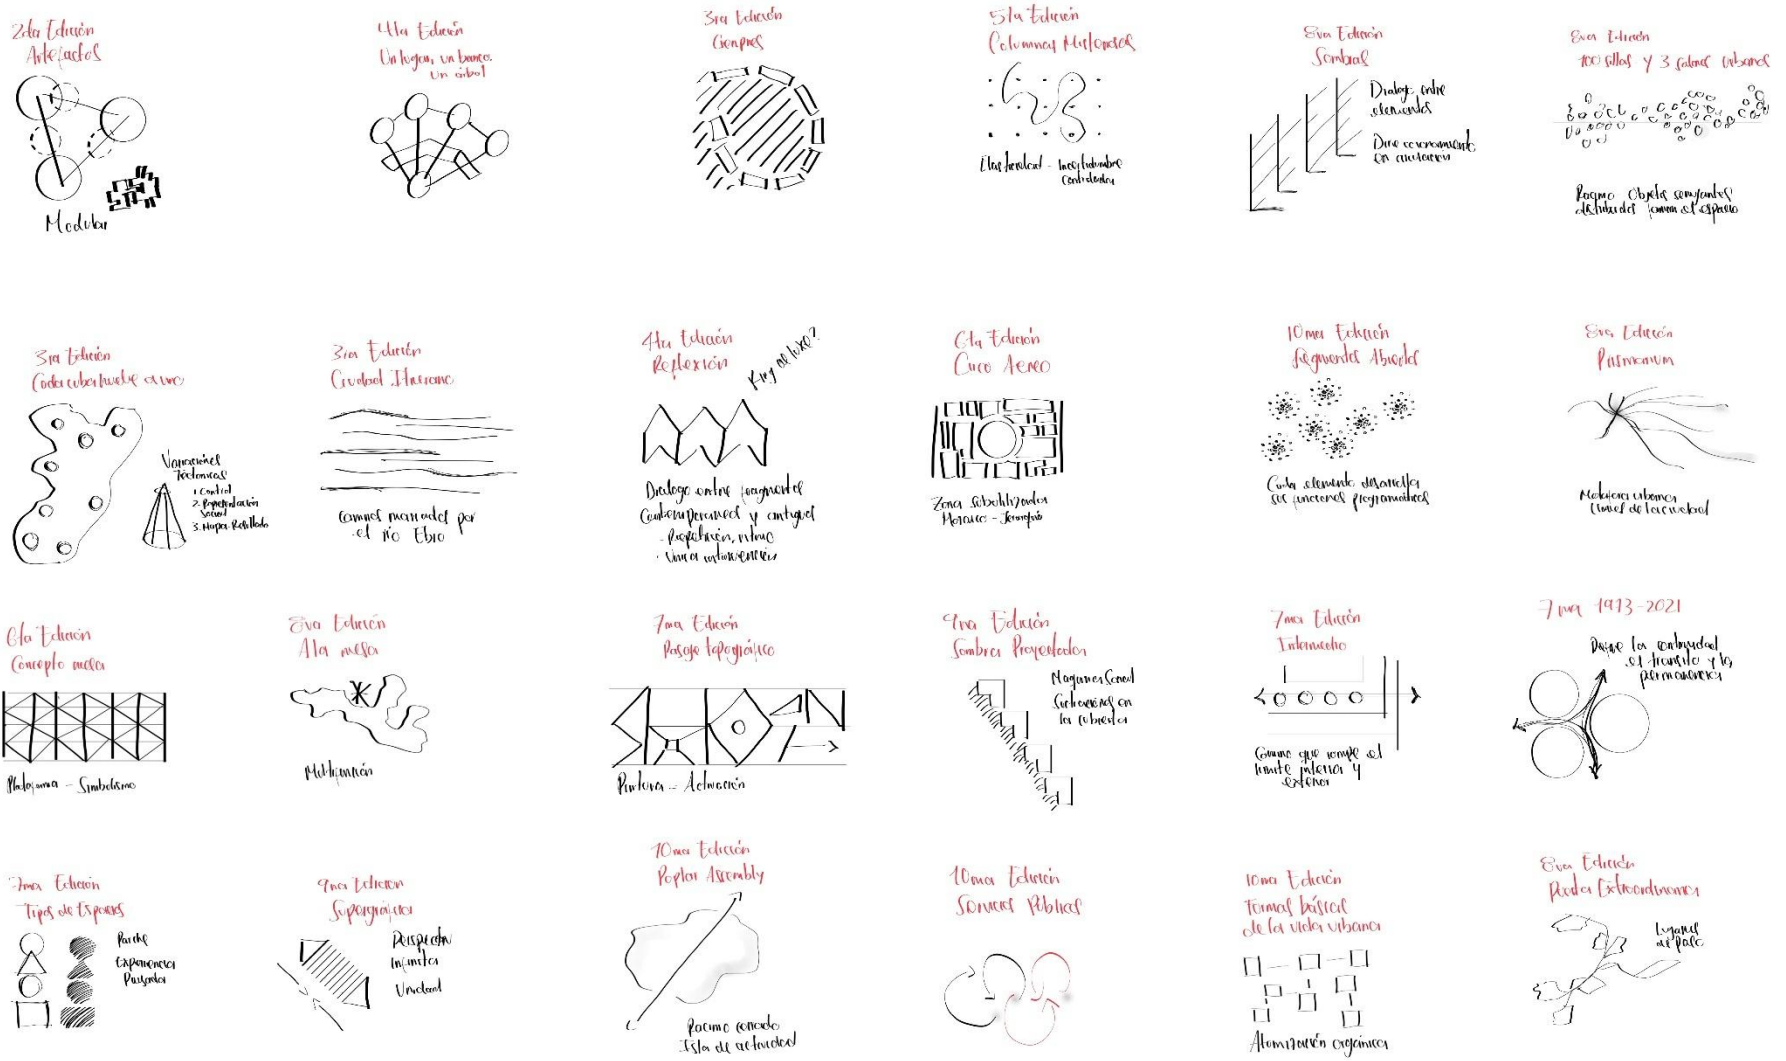 2da Edición
Artefactos
Modular
4ta Edición
Un lugar, un banco,
Un árbol
3ra Edición
5ta Edición
Columnas
Elasticidad - Incertidumbre
8va Edición
Sombras
Dialogo entre
elementos
8va Edición
100 sillas y 3 salones urbanos
Racimo Objetos semejantes
distribuidos el espacio
3ra Edición
Variaciones
Tectonicas
1. Control
2. Representación
Social
3.
3ra Edición
Ciudad Itinerano
marcados por
el río Ebro
4ta Edición
Reflexión
Dialogo entre fragmentos
y antiguos
- Repetición, ritmo
6ta Edición
Cuco Aereo
Zona
Mosaico -
10ma Edición
Fragmentos Abiertos
Cada elemento desarrolla
sus funciones programáticas
8va Edición
Prismarium
Metafora urbana
de la ciudad
6ta Edición
Concepto mesa
Plataforma - Simbolismo
8va Edición
A la mesa
7ma Edición
Pasaje topográfico
Pintura - Activación
9na Edición
Sombras Proyectadas
en
la cubierta
7ma Edición
Intermedio
Camino que rompe el
limite interior y
exterior
7ma 1973-2021
Define la continuidad
el transito y la
permanencia
7ma Edición
Tipos de Espacios
Parche
Experiencia
Pulsador
9na Edición
Supergráfica
Perspectiva
Infinita
Unidad
10ma Edición
Poplar Assembly
Racimo
Isla de actividad
10ma Edición
Servicios Públicos
10ma Edición
Formas básicas
de la vida urbana
Atomización orgánica
8va Edición
Parada Extraordinaria
Lugares
de paso